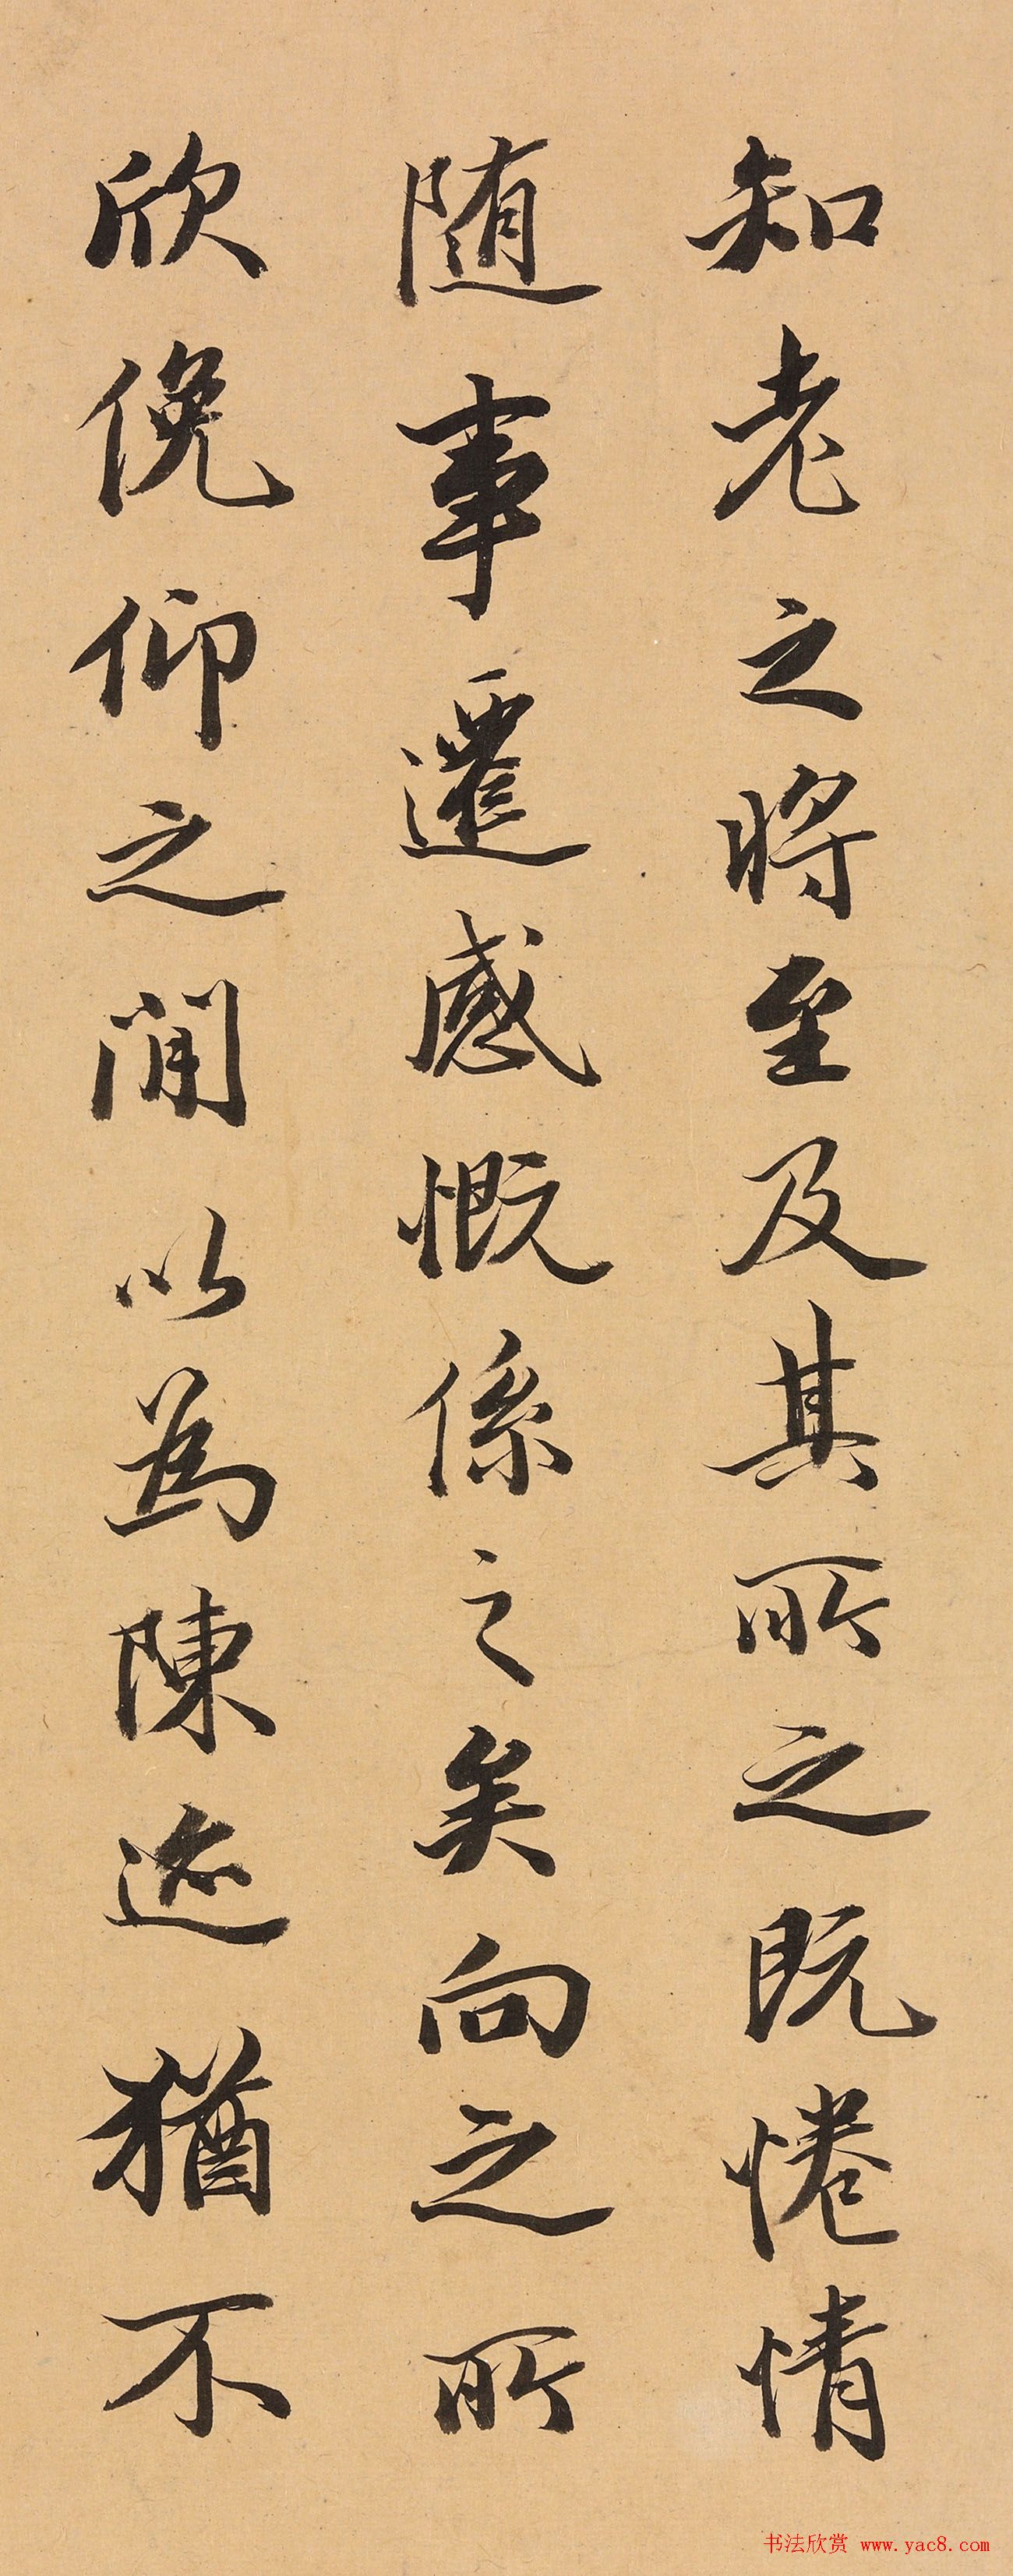 知老之将至及其所之既惓情
随事遷感慨係之矣向之所
欣俛仰之間以為陳迹猶不
书法欣赏 www.yac8.com